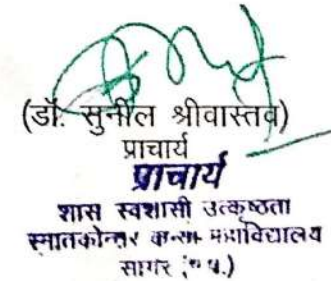 (डॉ. सुनील श्रीवास्तव)
प्राचार्य
प्राचार्य
शास स्वशासी उत्कृष्ठता
स्नातकोत्तर कन्या महाविद्यालय
सागर (म.प्र.)